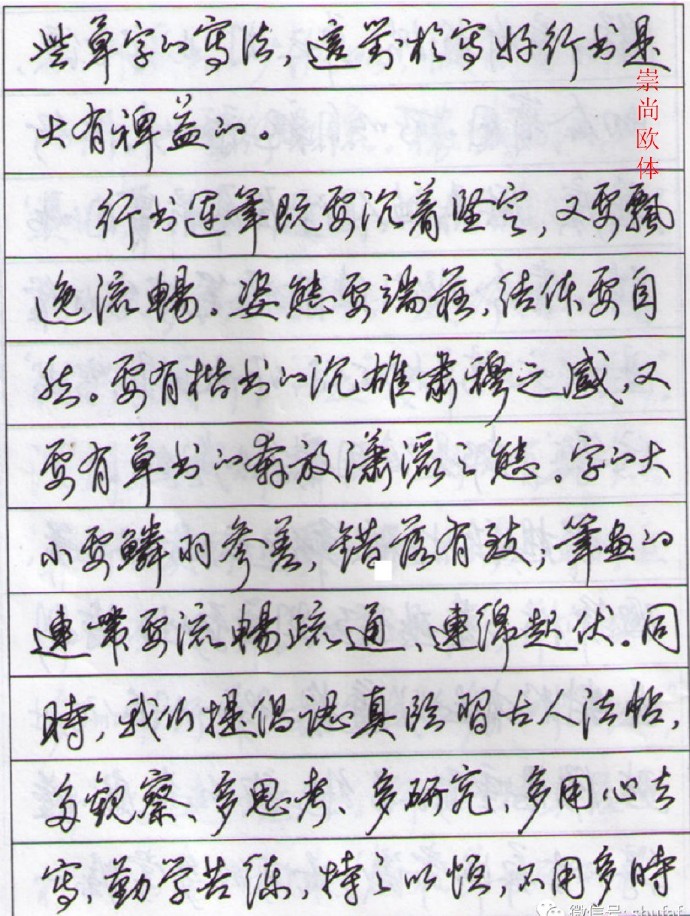 些草字的寫法，這對於寫好行书是
大有裨益的。
行书连笔既要沉着坚定，又要飘
逸流暢。姿態要端莊，结体要自
然。要有楷书的沉雄肃穆之感，又
要有草书的奔放潇灑之態。字的大
小要鳞羽参差，错落有致；笔画的
連带要流暢疏通、連绵起伏。同
時，我们提倡認真临習古人法帖，
多觀察、多思考、多研究、多用心去
寫，勤学苦练，持之以恒，不用多時
崇尚欧体
微信号：